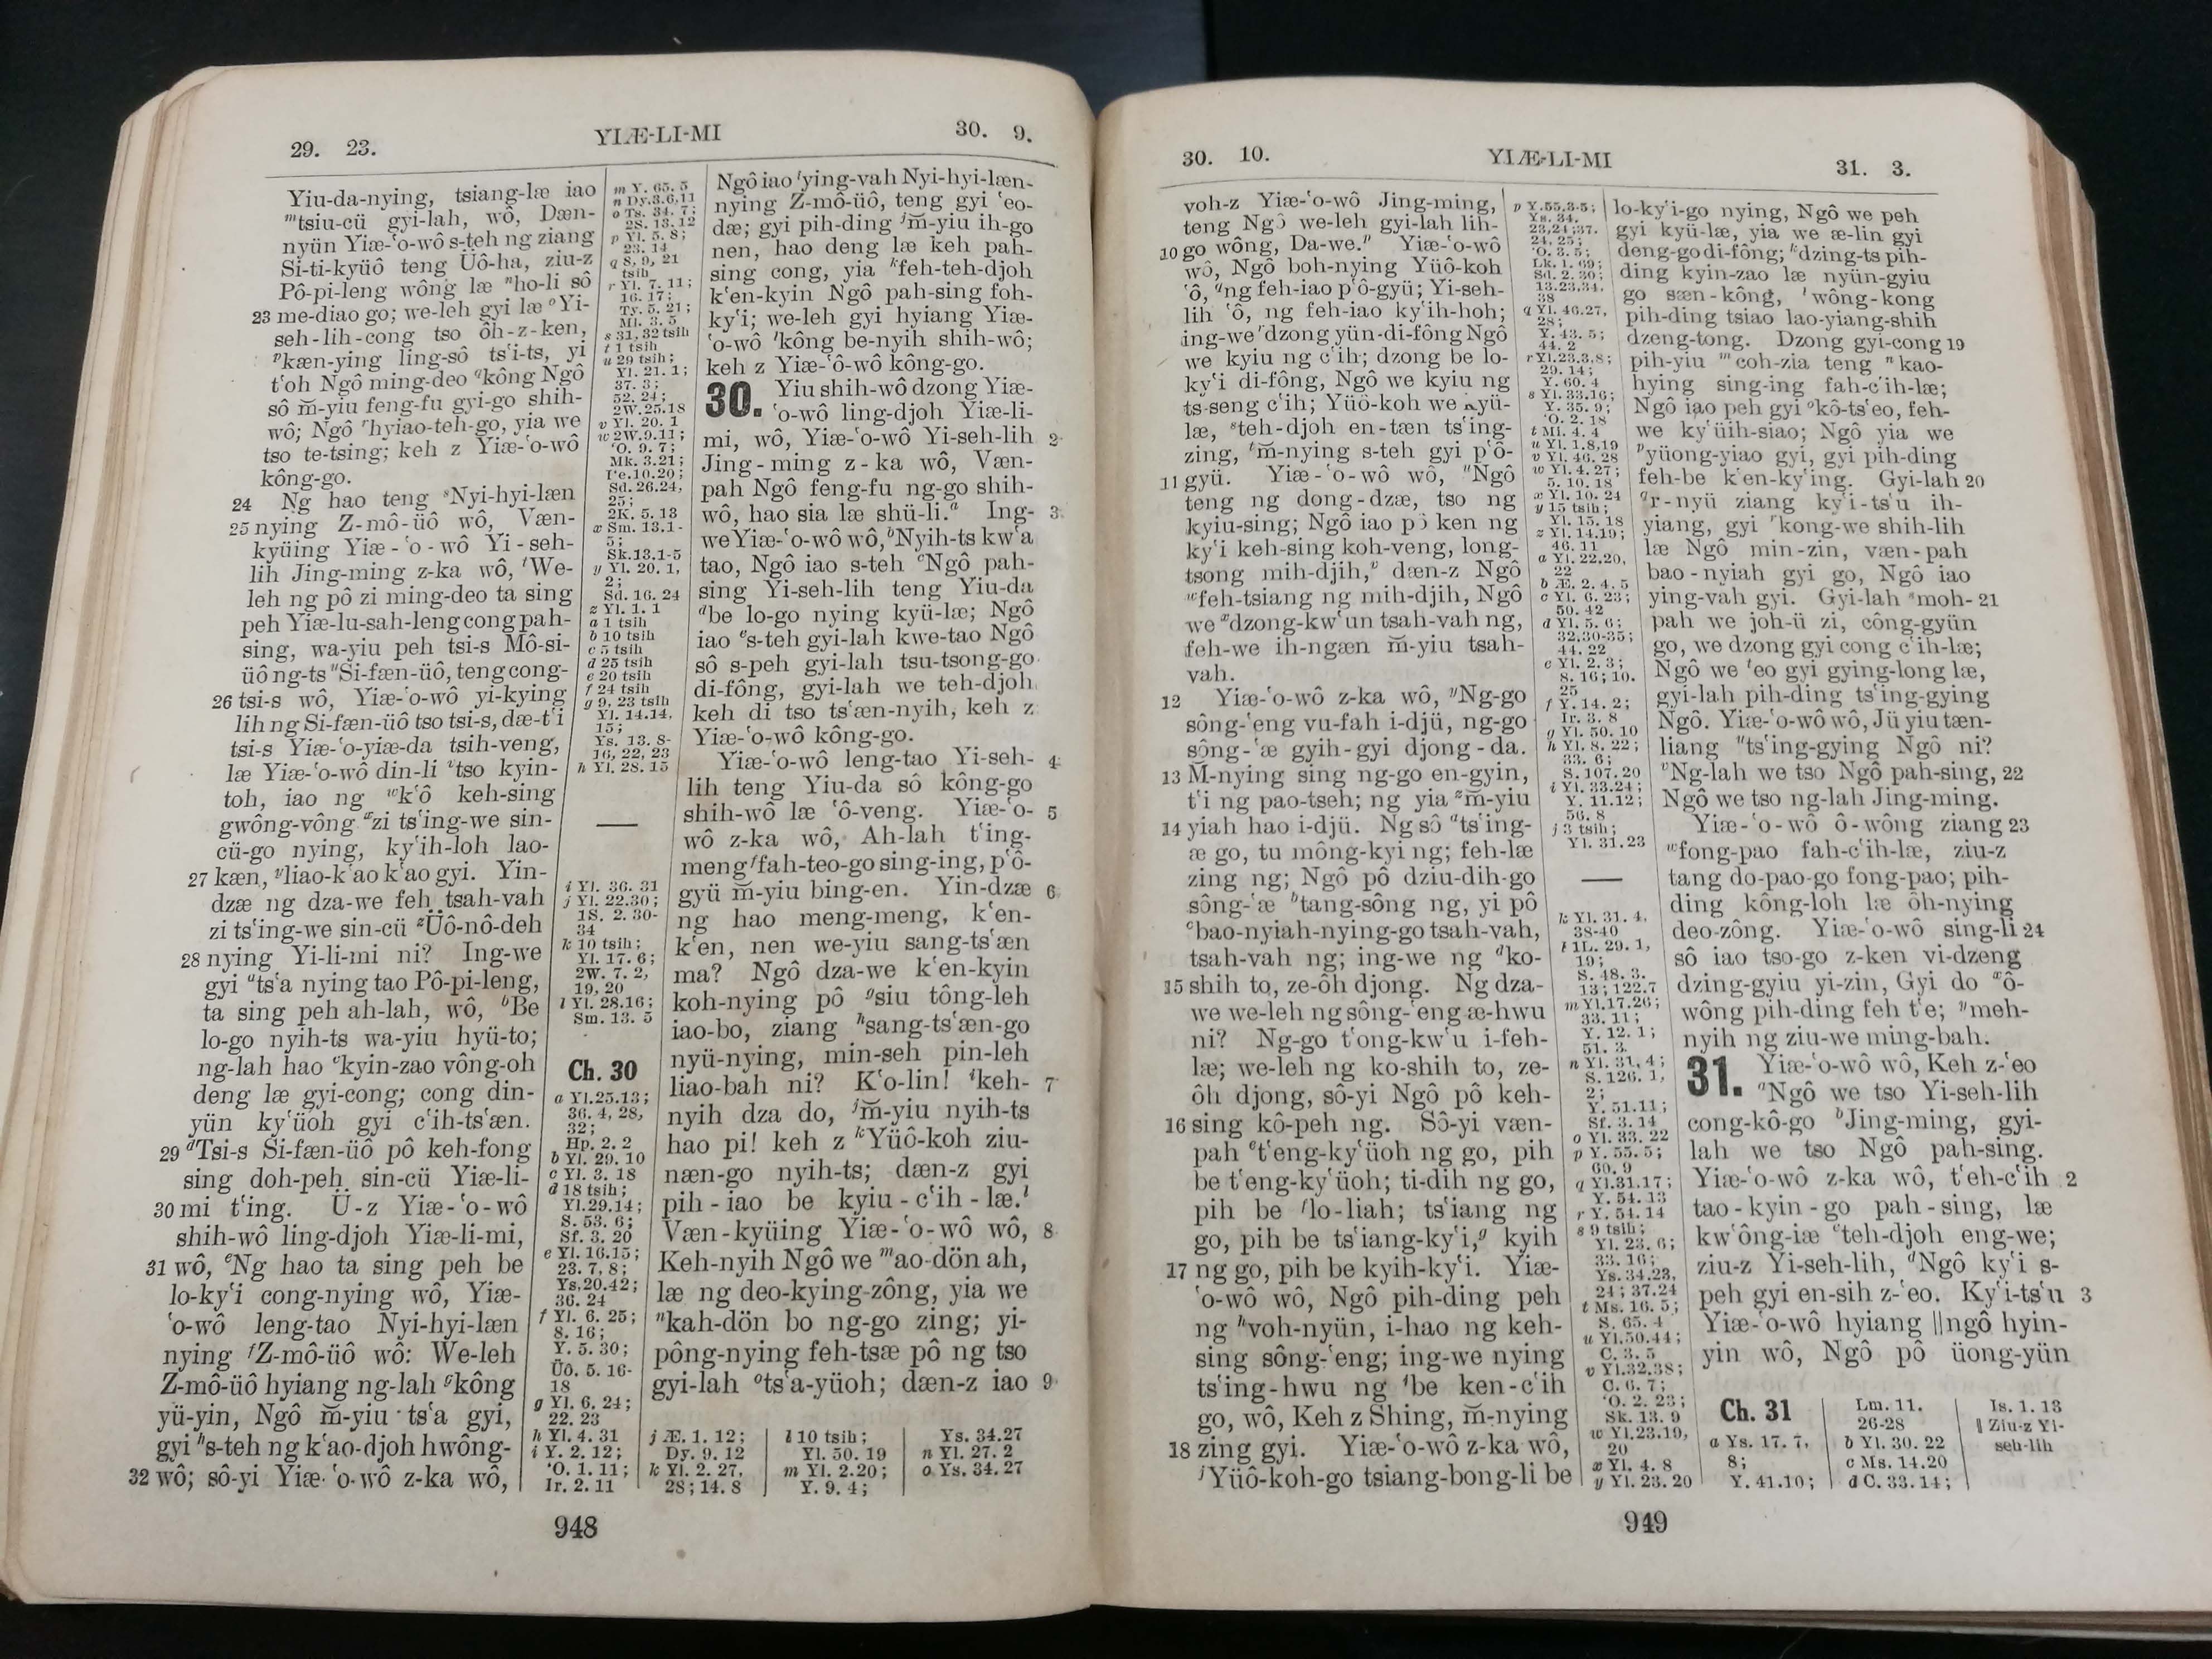 29. 23.
YIÆ-LI-MI
30. 9.
Yiu-da-nying, tsiang-læ iao
ᵐtsiu-cü gyi-lah, wô, Dæn-
nyün Yiæ-ʻo-wô s-teh ng ziang
Si-ti-kyüô teng Üô-ha, ziu-z
Pô-pi-leng wông læ ⁿho-li sô
23 me-diao go; we-leh gyi læ ᵒYi-
seh-lih-cong tso ôh-z-ken,
ᵖkæn-ying ling-sô tsʻi-ts, yi
tʻoh Ngô ming-deo ᑫkông Ngô
sô m̆-yiu feng-fu gyi-go shih-
wô; Ngô ʳhyiao-teh-go, yia we
tso te-tsing; keh z Yiæ-ʻo-wô
kông-go.
24 Ng hao teng ˢNyi-hyi-læn
25 nying Z-mô-üô wô, Væn-
kyüing Yiæ-ʻo-wô Yi-seh-
lih Jing-ming z-ka wô, ᵗWe-
leh ng pô zi ming-deo ta sing
peh Yiæ-lu-sah-leng cong pah-
sing, wa-yiu peh tsi-s Mô-si-
üô ng-ts ᵘSi-fæn-üô, teng cong-
26 tsi-s wô, Yiæ-ʻo-wô yi-kying
lih ng Si-fæn-üô tso tsi-s, dæ-tʻi
tsi-s Yiæ-ʻo-yiæ-da tsih-veng,
læ Yiæ-ʻo-wô din-li ᵛtso kyin-
toh, iao ng ʷkʻô keh-sing
gwông-vông ˣzi tsʻing-we sin-
cü-go nying, kyʻih-loh lao-
27 kæn, ʸliao-kʻao kʻao gyi. Yin-
dzæ ng dza-we feh tsah-vah
zi tsʻing-we sin-cü ᶻÜô-nô-deh
28 nying Yi-li-mi ni? Ing-we
gyi ᵃtsʻa nying tao Pô-pi-leng,
ta sing peh ah-lah, wô, ᵇBe
lo-go nyih-ts wa-yiu hyü-to;
ng-lah hao ᶜkyin-zao vông-oh
deng læ gyi-cong; cong din-
yün kyʻüoh gyi cʻih-tsʻæn.
29 ᵈTsi-s Si-fæn-üô pô keh-fong
sing doh-peh sin-cü Yiæ-li-
30 mi tʻing. Ü-z Yiæ-ʻo-wô
shih-wô ling-djoh Yiæ-li-mi,
31 wô, ᵉNg hao ta sing peh be
lo-kyʻi cong-nying wô, Yiæ-
ʻo-wô leng-tao Nyi-hyi-læn
nying ᶠZ-mô-üô wô: We-leh
Z-mô-üô hyiang ng-lah ᵍkông
yü-yin, Ngô m̆-yiu tsʻa gyi,
gyi ʰs-teh ng kʻao-djoh hwông-
32 wô; sô-yi Yiæ-ʻo-wô z-ka wô,
m Y. 65. 5
n Dy.3.6,11
o Ts. 34. 7;
2S. 13. 12
p Yl. 5. 8;
23. 14
q 8, 9, 21
tsih
r Yl. 7. 11;
16. 17;
Ty. 5. 21;
Ml. 3. 5
s 31, 32 tsih
t 1 tsih
u 29 tsih;
Yl. 21. 1;
37. 3;
52. 24;
2W.25.18
v Yl. 20. 1
w 2W.9.11;
ʻO. 9. 7;
Mk. 3.21;
Iʻe.10.20;
Sd. 26.24,
25;
2K. 5. 13
x Sm. 13.1-
5;
Sk.13.1-5
y Yl. 20. 1,
2;
Sd. 16. 24
z Yl. 1. 1
a 1 tsih
b 10 tsih
c 5 tsih
d 25 tsih
e 20 tsih
f 24 tsih
g 9, 23 tsih
Yl. 14.14,
15;
Ys. 13. 8-
16, 22, 23
h Yl. 28. 15
i Yl. 36. 31
j Yl. 22.30;
1S. 2. 30-
34
k 10 tsih;
Yl. 17. 6;
2W. 7. 2,
19, 20
l Yl. 28.16;
Sm. 13. 5
Ch. 30
a Yl.25.13;
36. 4, 28,
32;
Hp. 2. 2
b Yl. 29. 10
c Yl. 3. 18
d 18 tsih;
Yl.29.14;
S. 53. 6;
Sf. 3. 20
e Yl. 16.15;
23. 7, 8;
Ys.20.42;
36. 24
f Yl. 6. 25;
8. 16;
Y. 5. 30;
Üô. 5. 16-
18
g Yl. 6. 24;
22. 23
h Yl. 4. 31
i Y. 2. 12;
ʻO. 1. 11;
Ir. 2. 11
Ngô iao ⁱying-vah Nyi-hyi-læn-
nying Z-mô-üô, teng gyi ʻeo-
dæ; gyi pih-ding ʲm̆-yiu ih-go
nen, hao deng læ keh pah-
sing cong, yia ᵏfeh-teh-djoh
kʻen-kyin Ngô pah-sing foh-
kyʻi; we-leh gyi hyiang Yiæ-
ʻo-wô ˡkông be-nyih shih-wô;
keh z Yiæ-ʻô-wô kông-go.
30. Yiu shih-wô dzong Yiæ-
ʻo-wô ling-djoh Yiæ-li-
mi, wô, Yiæ-ʻo-wô Yi-seh-lih 2
Jing-ming z-ka wô, Væn-
pah Ngô feng-fu ng-go shih-
wô, hao sia læ shü-li.ᵃ Ing- 3
we Yiæ-ʻo-wô wô, ᵇNyih-ts kwʻa
tao, Ngô iao s-teh ᶜNgô pah-
sing Yi-seh-lih teng Yiu-da
ᵈbe lo-go nying kyü-læ; Ngô
iao ᵉs-teh gyi-lah kwe-tao Ngô
sô s-peh gyi-lah tsu-tsong-go
di-fông, gyi-lah we teh-djoh
keh di tso tsʻæn-nyih, keh z
Yiæ-ʻo-wô kông-go.
Yiæ-ʻo-wô leng-tao Yi-seh- 4
lih teng Yiu-da sô kông-go
shih-wô læ ʻô-veng. Yiæ-ʻo- 5
wô z-ka wô, Ah-lah tʻing-
meng ᶠfah-teo-go sing-ing, pʻô-
gyü m̆-yiu bing-en. Yin-dzæ 6
ng hao meng-meng, kʻen-
kʻen, nen we-yiu sang-tsʻæn
ma? Ngô dza-we kʻen-kyin
koh-nying pô ᵍsiu tông-leh
iao-bo, ziang ʰsang-tsʻæn-go
nyü-nying, min-seh pin-leh
liao-bah ni? Kʻo-lin! ⁱkeh- 7
nyih dza do, ʲm̆-yiu nyih-ts
hao pi! keh z ᵏYüô-koh ziu-
næn-go nyih-ts; dæn-z gyi
pih-iao be kyiu-cʻih-læ.ˡ
Væn-kyüing Yiæ-ʻo-wô wô, 8
Keh-nyih Ngô we ᵐao-dön ah,
læ ng deo-kying-zông, yia we
ⁿkah-dön bo ng-go zing; yi-
pông-nying feh-tsæ pô ng tso
gyi-lah ᵒtsʻa-yüoh; dæn-z iao 9
j Æ. 1. 12;
Dy. 9. 12
k Yl. 2. 27,
28; 14. 8
l 10 tsih;
Yl. 50. 19
m Yl. 2.20;
Y. 9. 4;
Ys. 34.27
n Yl. 27. 2
o Ys. 34. 27
948
30. 10.
YIÆ-LI-MI
31. 3.
voh-z Yiæ-ʻo-wô Jing-ming,
teng Ngô we-leh gyi-lah lih-
10 go wông, Da-we.ᵖ Yiæ-ʻo-wô
wô, Ngô boh-nying Yüô-koh
ʻô, ᑫng feh-iao pʻô-gyü; Yi-seh-
lih ʻô, ng feh-iao kyʻih-hoh;
ing-we ʳdzong yün-di-fông Ngô
we kyiu ng cʻih; dzong be lo-
kyʻi di-fông, Ngô we kyiu ng
ts-seng cʻih; Yüô-koh we kyü-
læ, ˢteh-djoh en-tæn tsʻing-
zing, ᵗm̆-nying s-teh gyi pʻô-
11 gyü. Yiæ-ʻo-wô wô, ᵘNgô
teng ng dong-dzæ, tso ng
kyiu-sing; Ngô iao pô ken ng
kyʻi keh-sing koh-veng, long-
tsong mih-djih,ᵛ dæn-z Ngô
ʷfeh-tsiang ng mih-djih, Ngô
we ˣdzong-kwʻun tsah-vah ng,
feh-we ih-ngæn m̆-yiu tsah-
vah.
12 Yiæ-ʻo-wô z-ka wô, ʸNg-go
sông-ʻeng vu-fah i-djü, ng-go
sông-ʻæ gyih-gyi djong-da.
13 M̆-nying sing ng-go en-gyin,
tʻi ng pao-tseh; ng yia ᶻm̆-yiu
14 yiah hao i-djü. Ng sô ᵃtsʻing-
æ go, tu mông-kyi ng; feh-læ
zing ng; Ngô pô dziu-dih-go
sông-ʻæ ᵇtang-sông ng, yi pô
ᶜbao-nyiah-nying-go tsah-vah,
tsah-vah ng; ing-we ng ᵈko-
15 shih to, ze-ôh djong. Ng dza-
we we-leh ng sông-ʻeng æ-hwu
ni? Ng-go tʻong-kwʻu i-feh-
læ; we-leh ng ko-shih to, ze-
ôh djong, sô-yi Ngô pô keh-
16 sing kô-peh ng. Sô-yi væn-
pah ᵉtʻeng-kyʻüoh ng go, pih
be tʻeng-kyʻüoh; ti-dih ng go,
pih be ᶠlo-liah; tsʻiang ng
go, pih be tsʻiang-kyʻi,ᵍ kyih
17 ng go, pih be kyih-kyʻi. Yiæ-
ʻo-wô wô, Ngô pih-ding peh
ng ʰvoh-nyün, i-hao ng keh-
sing sông-ʻeng; ing-we nying
tsʻing-hwu ng ⁱbe ken-cʻih
go, wô, Keh z Shing, m̆-nying
18 zing gyi. Yiæ-ʻo-wô z-ka wô,
ʲYüô-koh-go tsiang-bong-li be
p Y.55.3-5;
Ys. 34.
23,24;37.
24, 25;
ʻO. 3. 5;
Lk. 1. 69;
Sd. 2. 30;
13.23,34,
38
q Yl. 46.27,
28;
Y. 43. 5;
44. 2
r Yl.23.3,8;
29. 14;
Y. 60. 4
s Yl. 33.16;
Y. 35. 9;
ʻO. 2. 18
t Ml. 4. 4
u Yl. 1.8,19
v Yl. 46. 28
w Yl. 4. 27;
5. 10. 18
x Yl. 10. 24
y 15 tsih;
Yl. 15. 18
z Yl. 14.19;
46. 11
a Yl. 22.20,
22
b Æ. 2. 4. 5
c Yl. 6. 23;
50. 42
d Yl. 5. 6;
32.30-35;
44. 22
e Yl. 2. 3;
8. 16; 10.
25
f Y. 14. 2;
Ir. 3. 8
g Yl. 50. 10
h Yl. 8. 22;
33. 6;
S. 107. 20
i Yl. 33.24;
Y. 11.12;
56. 8
j 3 tsih;
Yl. 31.23
k Yl. 31. 4,
38-40
l 1L. 29. 1,
19;
S. 48. 3.
13; 122.7
m Yl.17.26;
33. 11;
Y. 12. 1;
51. 3.
n Yl. 31. 4;
S. 126. 1,
2;
Y. 51.11;
Sf. 3. 14
o Yl. 33. 22
p Y. 55. 5;
60. 9
q Yl.31.17;
Y. 54. 13
r Y. 54. 14
s 9 tsih;
Yl. 23. 6;
33. 16;
Ys. 34.23,
24; 37.24
t Ms. 16. 5;
S. 65. 4
u Yl.50.44;
C. 3. 5
v Yl.32.38;
C. 6. 7;
ʻO. 2. 23;
Sk. 13. 9
w Yl.23.19,
20
x Yl. 4. 8
y Yl. 23. 20
lo-kyʻi-go nying, Ngô we peh
gyi kyü-læ, yia we æ-lin gyi
deng-go di-fông; ᵏdzing-ts pih-
ding kyin-zao læ nyün-gyiu
go sæn-kông, ˡwông-kong
pih-ding tsiao lao-yiang-shih
dzeng-tong. Dzong gyi-cong 19
pih-yiu ᵐcoh-zia teng ⁿkao-
hying sing-ing fah-cʻih-læ;
Ngô iao peh gyi ᵒkô-tsʻeo, feh-
we kyʻüih-siao; Ngô yia we
ᵖyüong-yiao gyi, gyi pih-ding
feh-be kʻen-kyʻing. Gyi-lah 20
ᑫr-nyü ziang kyʻi-tsʻu ih-
yiang, gyi ʳkong-we shih-lih
læ Ngô min-zin, væn-pah
bao-nyiah gyi go, Ngô iao
ying-vah gyi. Gyi-lah ˢmoh- 21
pah we joh-ü zi, công-gyün
go, we dzong gyi cong cʻih-læ;
Ngô we ᵗeo gyi gying-long læ,
gyi-lah pih-ding tsʻing-gying
Ngô. Yiæ-ʻo-wô wô, Jü yiu tæn-
liang ᵘtsʻing-gying Ngô ni?
ᵛNg-lah we tso Ngô pah-sing, 22
Ngô we tso ng-lah Jing-ming.
Yiæ-ʻo-wô ô-wông ziang 23
ʷfong-pao fah-cʻih-læ, ziu-z
tang do-pao-go fong-pao; pih-
ding kông-loh læ ôh-nying
deo-zông. Yiæ-ʻo-wô sing-li 24
sô iao tso-go z-ken vi-dzeng
dzing-gyiu yi-zin, Gyi do ˣô-
wông pih-ding feh tʻe; ʸmeh-
nyih ng ziu-we ming-bah.
31. Yiæ-ʻo-wô wô, Keh z-ʻeo
ᵃNgô we tso Yi-seh-lih
cong-kô-go ᵇJing-ming, gyi-
lah we tso Ngô pah-sing.
Yiæ-ʻo-wô z-ka wô, tʻeh-cʻih 2
tao-kyin-go pah-sing, læ
kwʻông-iæ ᶜteh-djoh eng-we;
ziu-z Yi-seh-lih, ᵈNgô kyʻi s-
peh gyi en-sih z-ʻeo. Kyʻi-tsʻu 3
Yiæ-ʻo-wô hyiang ||ngô hyin-
yin wô, Ngô pô üong-yün
Ch. 31
a Ys. 17. 7,
8;
Y. 41.10;
Lm. 11.
26-28
b Yl. 30. 22
c Ms. 14.20
d C. 33.14;
Is. 1. 13
|| Ziu-z Yi-
seh-lih
949